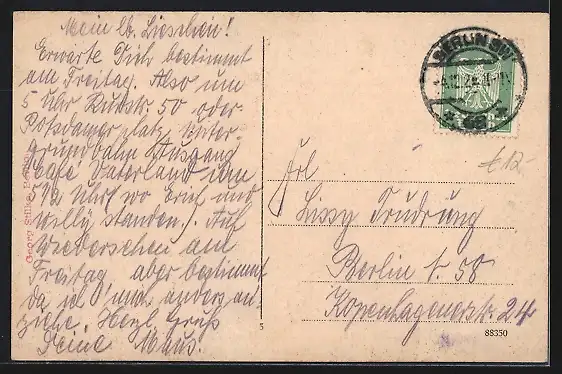 Mein lb. Lieschen!
Erwarte Dich bestimmt
am Freitag. Also um
5 Uhr Rückstr. 50 oder
Potsdamerplatz, Unter-
grundbahn Ausgang
Café Vaterland um
5 1/2 Uhr (wo Erich und
Willy standen.). Auf
Wiedersehen am
Freitag aber bestimmt
da ich mich anders an
ziehe. Herzl. Gruß
Deine Maus.
Georg Stilke, Berlin
BERLIN
5
Frl
Lissy Trudrung
Berlin n. 58
Kopenhagenerstr. 24
88350
€ 12.-